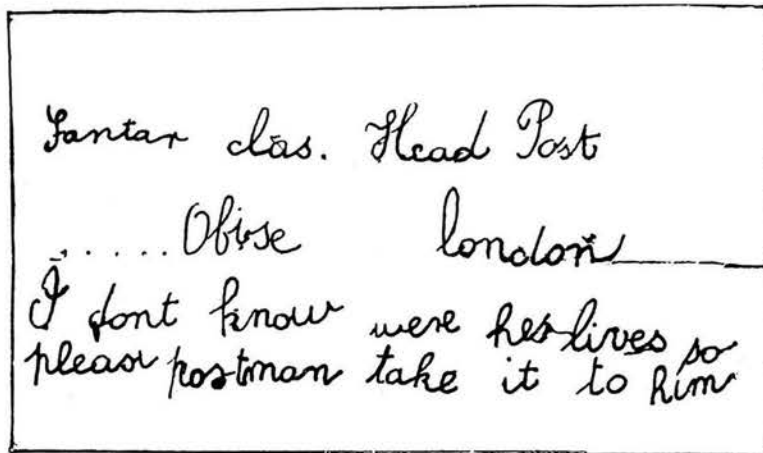 Santar clas. Head Post
...... Obise london
I dont know were hes lives so
please postman take it to him